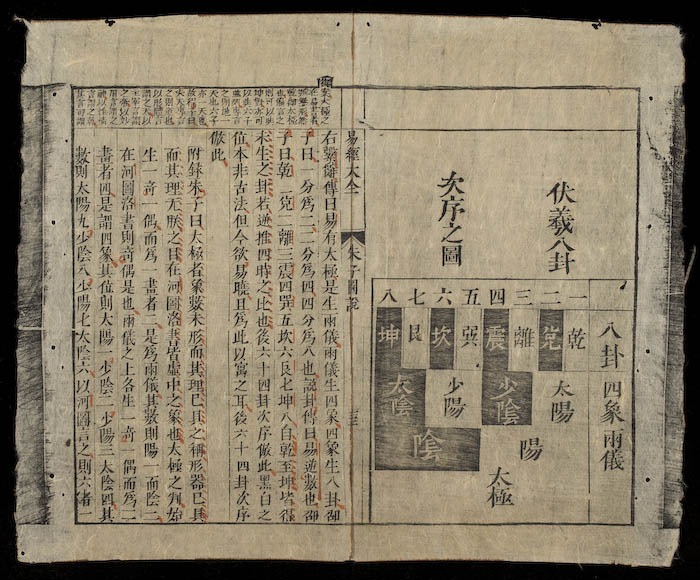 伏羲八卦
次序之圖
八卦 四象 兩儀
一二三四五六七八
乾兌離震巽坎艮坤
太陽 少陰 少陽 太陰
陽 陰
太極
易經大全 朱子圖說
右繫辭傳曰易有太極是生兩儀兩儀生四象四象生八卦邵
子曰一分爲二二分爲四四分爲八也說卦傳曰易逆數也邵
子曰乾一兌二離三震四巽五坎六艮七坤八自乾至坤皆得
未生之卦若逆推四時之比也後六十四卦次序倣此黑白之
位本非古法但今欲易曉且爲此以寓之耳後六十四卦次序
倣此
附錄朱子曰太極者象數未形而其理已具之稱形器已具
而其理无朕之目在河圖洛書皆虛中之象也太極之判始
生一奇一偶而爲一畫者二是爲兩儀其數則陽一而陰二
在河圖洛書則奇偶是也兩儀之上各生一奇一偶而爲二
畫者四是謂四象其位則太陽一少陰二少陽三太陰四其
數則太陽九少陰八少陽七太陰六以河圖言之則六者一